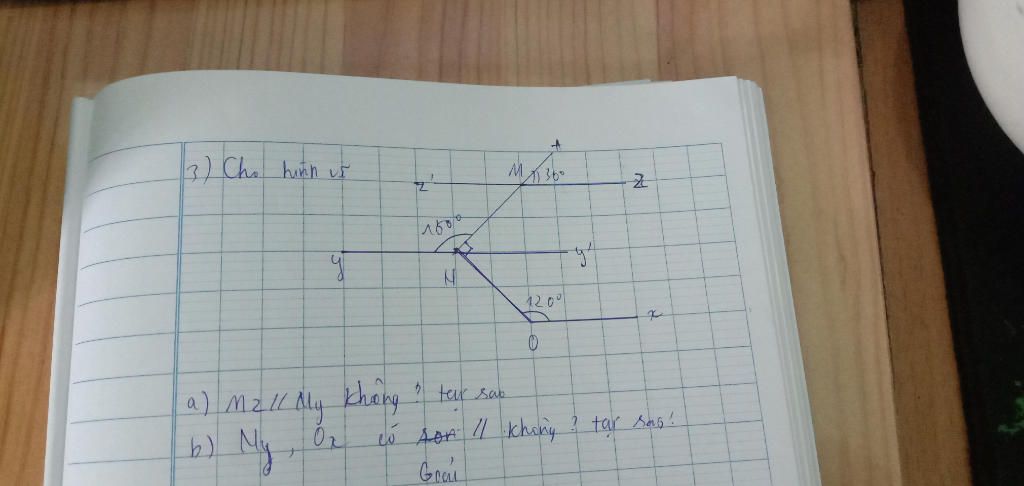 3) Cho hình vẽ
A
z' M 30° z
150°
y N y'
120°
O x
a) Mz // Ny không? tại sao
b) Ny, Ox có // không? tại sao?
Giải